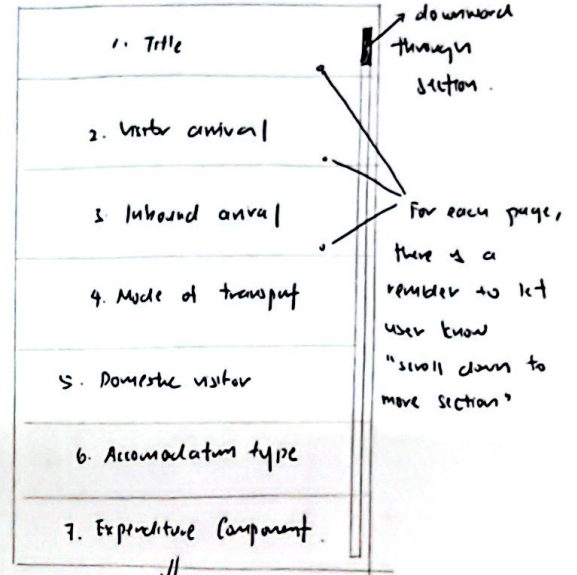 1. Title
2. Visitor arrival
3. Inbound arrival
4. Mode of transport
5. Domestic visitor
6. Accomodation type
7. Expenditure Component.
downward
through
section.
For each page,
there is a
reminder to let
user know
"scroll down to
more section"